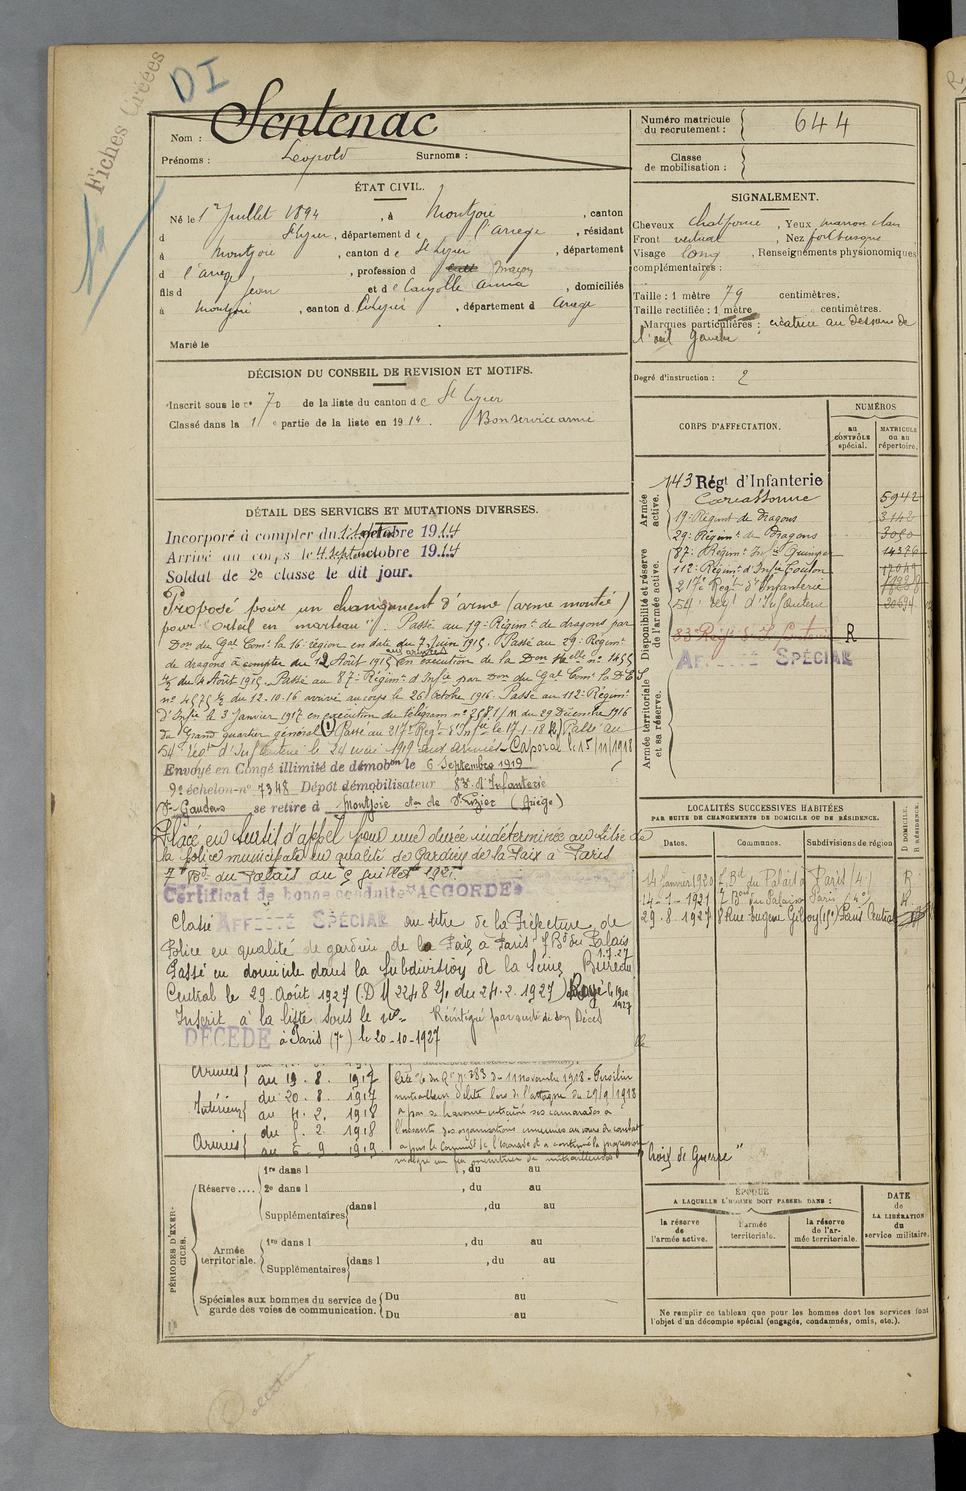 Fiches Créées
DI
Nom : Sentenac
Prénoms : Leopold Surnoms :
Numéro matricule du recrutement : 644
Classe de mobilisation :
ÉTAT CIVIL.
Né le 1er Juillet 1894, à Montjoie, canton
d St Lizier, département de l'Ariege, résidant
à Montjoie, canton de St Lizier, département
d l'Arieg, profession d Maçon
fils d Jean et de Cazolle Anna, domiciliés
à Montjoie, canton d St Lizier, département d Ariege
Marié le
SIGNALEMENT.
Cheveux chat fonce, Yeux marron clair
Front vertical, Nez fort busqué
Visage long, Renseignements physionomiques
complémentaires :
Taille : 1 mètre 79 centimètres.
Taille rectifiée : 1 mètre centimètres.
Marques particulières : cicatrice au dessous de
l'œil gauche
Degré d'instruction : 2
DÉCISION DU CONSEIL DE REVISION ET MOTIFS.
Inscrit sous le n° 70 de la liste du canton de St Lizier
Classé dans la 1e partie de la liste en 1914. Bon service armé
CORPS D'AFFECTATION.
NUMÉROS
au CONTRÔLE spécial.
MATRICULE ou au répertoire.
Armée active.
Disponibilité et réserve de l'armée active.
Armée territoriale et sa réserve.
143 Régt d'Infanterie
Carcassonne 5942
19e Régiment de Dragons
29e Régimt de Dragons
87e Régimt Infie Quimper
112e Régimt d'Infie Toulon
217e Regt d'Infanterie
54e Regt d'Infanterie
83e Regt d'Infanterie R
AFFECTÉ SPÉCIAL
DÉTAIL DES SERVICES ET MUTATIONS DIVERSES.
Incorporé à compter du octobre 1914
Arrivé au corps le 4 Septoctobre 1914
Soldat de 2e classe le dit jour.
Proposé pour un changement d'arme (arme montée)
pour orteil en marteau. Passé au 19e Régimt de dragons par
Don du Gal Comt la 16e région en date du 7 Juin 1915. Passé au 29e Régimt
de dragons à compter du 12 Août 1915 aux armées en exécution de la Don
du 4 Août 1915. Passé au 87e Régimt d'Infie par Don du Gal Comt la D.E.S
n° 4575 du 12.10.16 arrivé au corps le 26 octobre 1916. Passé au 112e Régimt
d'Infie le 3 Janvier 1917 en exécution du télégram n° 2681/M du 29 Décembre 1916
du Grand Quartier général (1) Passé au 217e Regt d'Infie le 17-1-18 Passé au
54e Régt d'Infanterie le 24 mai 1919 aux armées - Caporal le 15/11/1918
Envoyé en Congé illimité de démobon le 6 Septembre 1919
9e échelon n° 7348 Dépôt démobilisateur 83e d'Infanterie
St Gaudens se retire à Montjoie cton de St Lizier (Ariège)
Placé en sursis d'appel pour une durée indéterminée au titre de
la police municipale en qualité de Gardien de la Paix à Paris
7 Bd du Palais du 5 Juillet 1921
Certificat de bonne conduite "ACCORDÉ"
Classé AFFECTÉ SPÉCIAL au titre de la Préfecture de
Police en qualité de gardien de la Paix à Paris 7 Bd du Palais
1.7.27
Passé en domicile dans la Subdivision de la Seine Bureau
Central le 29 Août 1927 (D M 2248 du 24.2.1927) Rayé le
1927
Inscrit à la liste sous le n° Réintégré par suite de son Décès
DÉCÉDÉ à Paris (7e) le 20-10-1927
LOCALITÉS SUCCESSIVES HABITÉES
PAR SUITE DE CHANGEMENTS DE DOMICILE OU DE RÉSIDENCE.
Dates. Communes. Subdivisions de région
D DOMICILE.
R RÉSIDENCE.
14 Janvier 1920 7 Bd du Palais à Paris (4e) R
14-1-1921 7 Bd du Palais Paris 4e R
29.8.1927 8 Rue Eugène Gibez (15e) Paris Central
Armées au 19.8.1917
Intérieur du 20.8.1917
au 4.2.1918
Armées du 5.2.1918
au 6.9.1919
Cité à l'o. du Rt n° 283 du 11 novembre 1918 - Fusilier
mitrailleur d'élite lors de l'attaque du 29/9/1918
a par sa bravoure entraîné ses camarades à
l'assaut des organisations ennemies
"Croix de Guerre"
PÉRIODES D'EXERCICES.
Réserve....
1re dans l , du au
2e dans l , du au
Supplémentaires dans l , du au
Armée territoriale.
1re dans l , du au
Supplémentaires dans l , du au
Spéciales aux hommes du service de garde des voies de communication.
Du au
Du au
ÉPOQUE
A LAQUELLE L'HOMME DOIT PASSER DANS :
la réserve de l'armée active.
l'armée territoriale.
la réserve de l'armée territoriale.
DATE de LA LIBÉRATION du service militaire.
Ne remplir ce tableau que pour les hommes dont les services font
l'objet d'un décompte spécial (engagés, condamnés, omis, etc.).